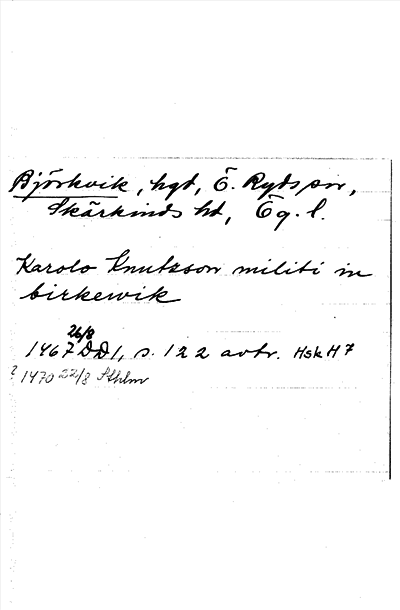 Björkvik, hgd, Ö. Ryds sn,
Skärkinds hd, Ög. l.
Karolo Knutsson militi in
birkewik
26/8
1467 DD1, s. 122 avtr. HskH 7
? 1470 22/8 Sthlm